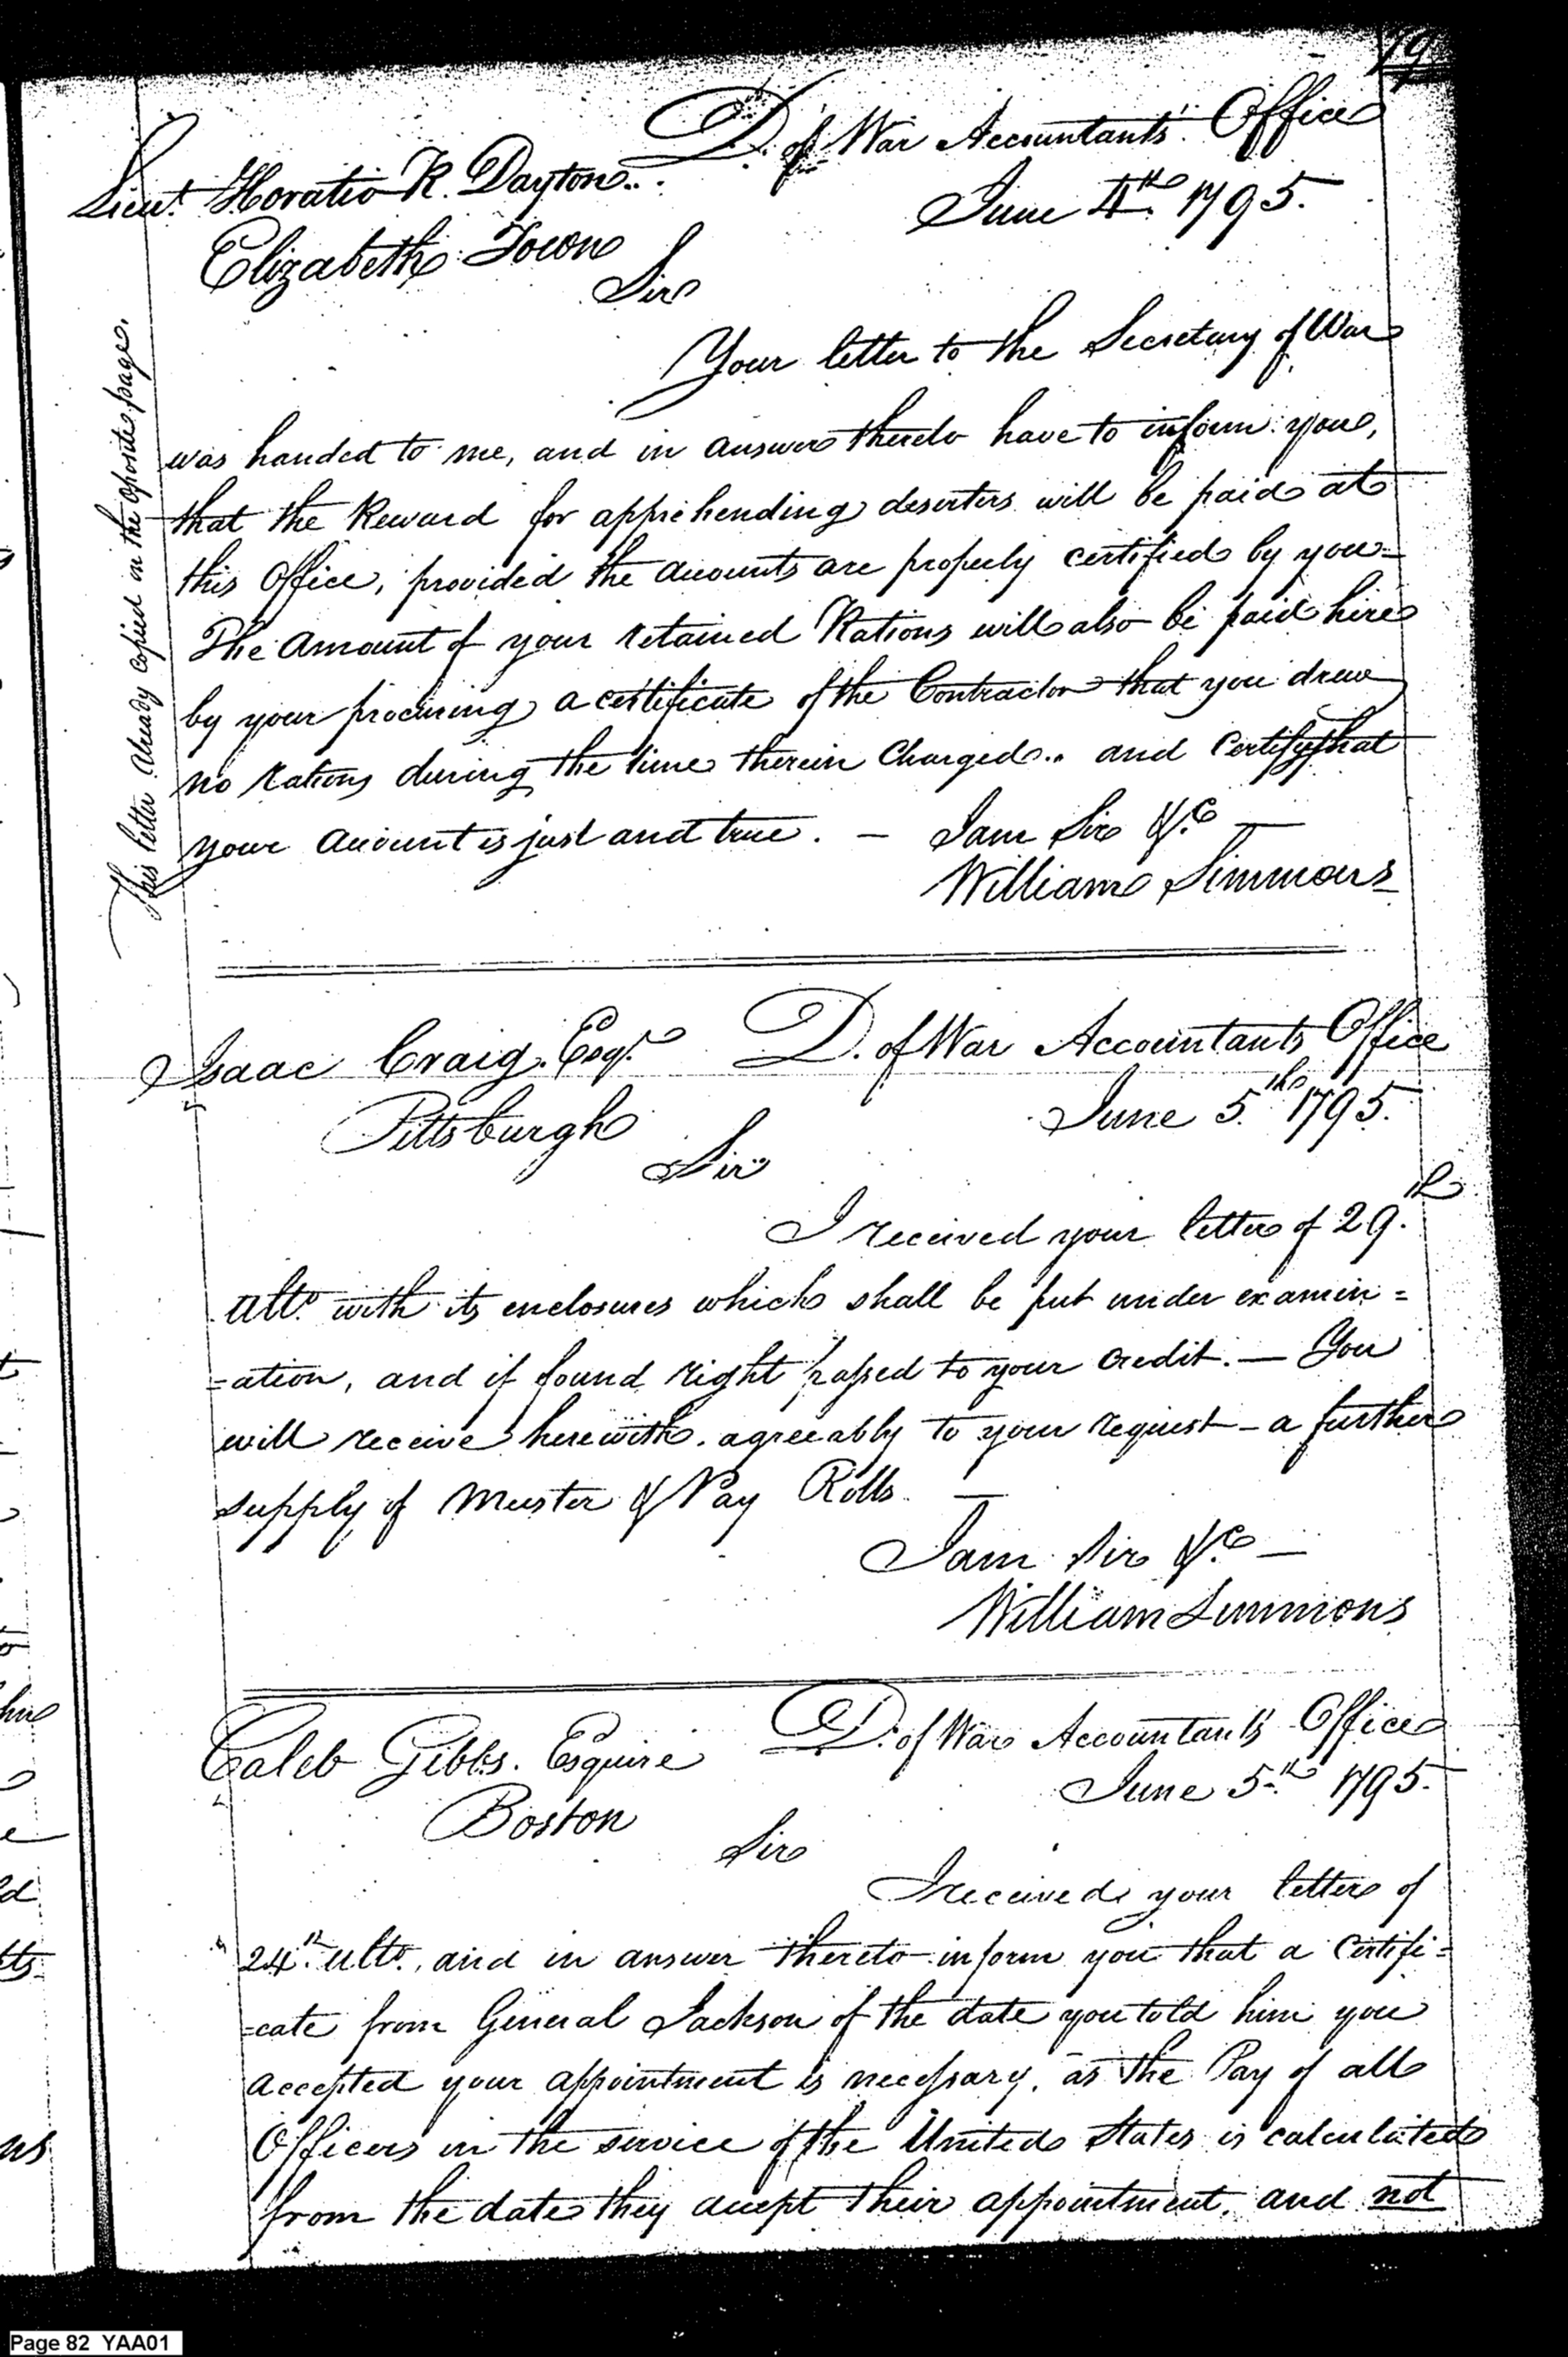 79
D. of War Accountants' Office
Lieut. Horatio R. Dayton..
June 4th. 1795.
Elizabeth Town
Sir
Your letter to the Secretary of War
was handed to me, and in answer thereto have to inform you,
that the Reward for apprehending deserters will be paid at
this Office, provided the accounts are properly certified by you=
The Amount of your retained Rations will also be paid here
by your procuring a certificate of the Contractor that you drew
no rations during the time therein Charged.. and certify that
your account is just and true. — I am Sir &c —
William Simmons
This letter already copied in the oposite page.
Isaac Craig. Esqr. D. of War Accountants Office
Pittsburgh June 5th 1795.
Sir
I received your letter of 29.th
ulto. with its enclosures which shall be put under examin=
=ation, and if found right passed to your credit. — You
will receive herewith, agreeably to your request — a further
supply of Muster & Pay Rolls. —
I am Sir &c —
William Simmons
Caleb Gibbs. Esquire D. of War Accountant's Office
June 5th 1795.
Boston
Sir
I received your letter of
24th. ulto., and in answer thereto inform you that a Certifi=
=cate from General Jackson of the date you told him you
accepted your appointment is necessary, as the Pay of all
Officers in the service of the United States is calculated
from the date they accept their appointment, and not
Page 82 YAA01